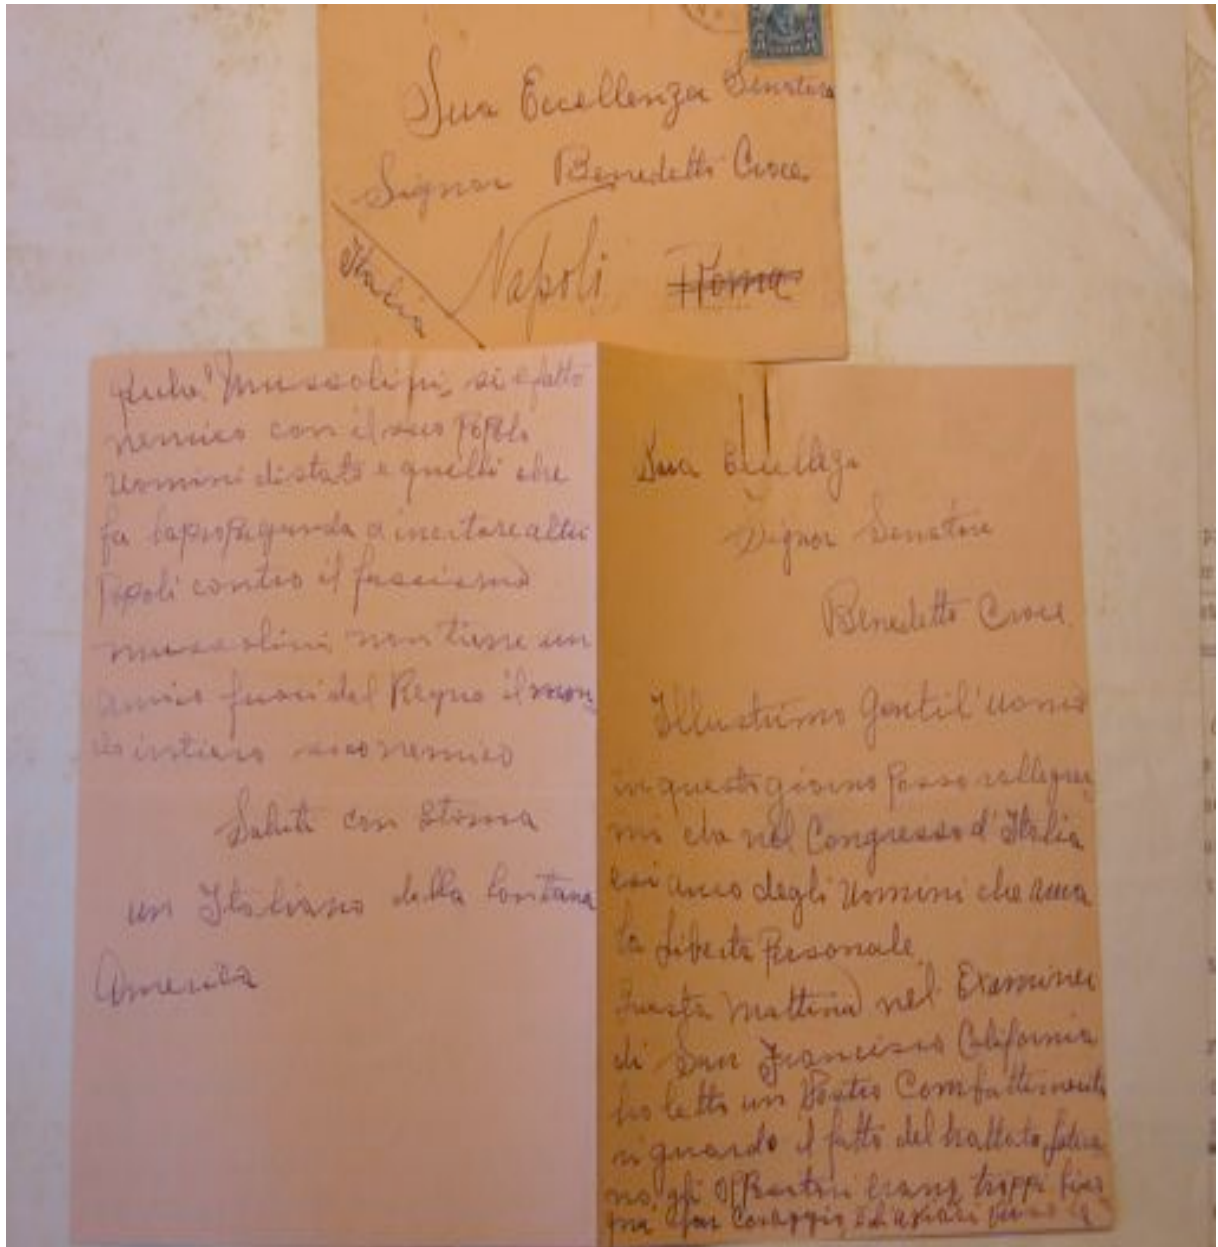 Sua Eccellenza Senatore
Signor Benedetti Croce
Napoli Roma
Italia
Mussolini, si e fatto
nemico con il suo Popolo
uomini di stato e quelli che
fa la propaganda a incitare altri
Popoli contro il fascismo
mussolini non tiene un
amico fuori del Regno il mon
do intiero nemico
Saluti con Stima
un Italiano della lontana
America
Sua
Signor Senatore
Benedetto Croce
Illustrimo Gentil'uomo
in questo giorno Posso rallegrar
mi che nel Congresso d'Italia
anco degli Uomini che ama
la Liberta Personale
questa mattina nel Examiner
di San Francisco California
ho letto un Vostro Combattimento
riguardo il fatto del trattato
no, gli troppi
coraggio